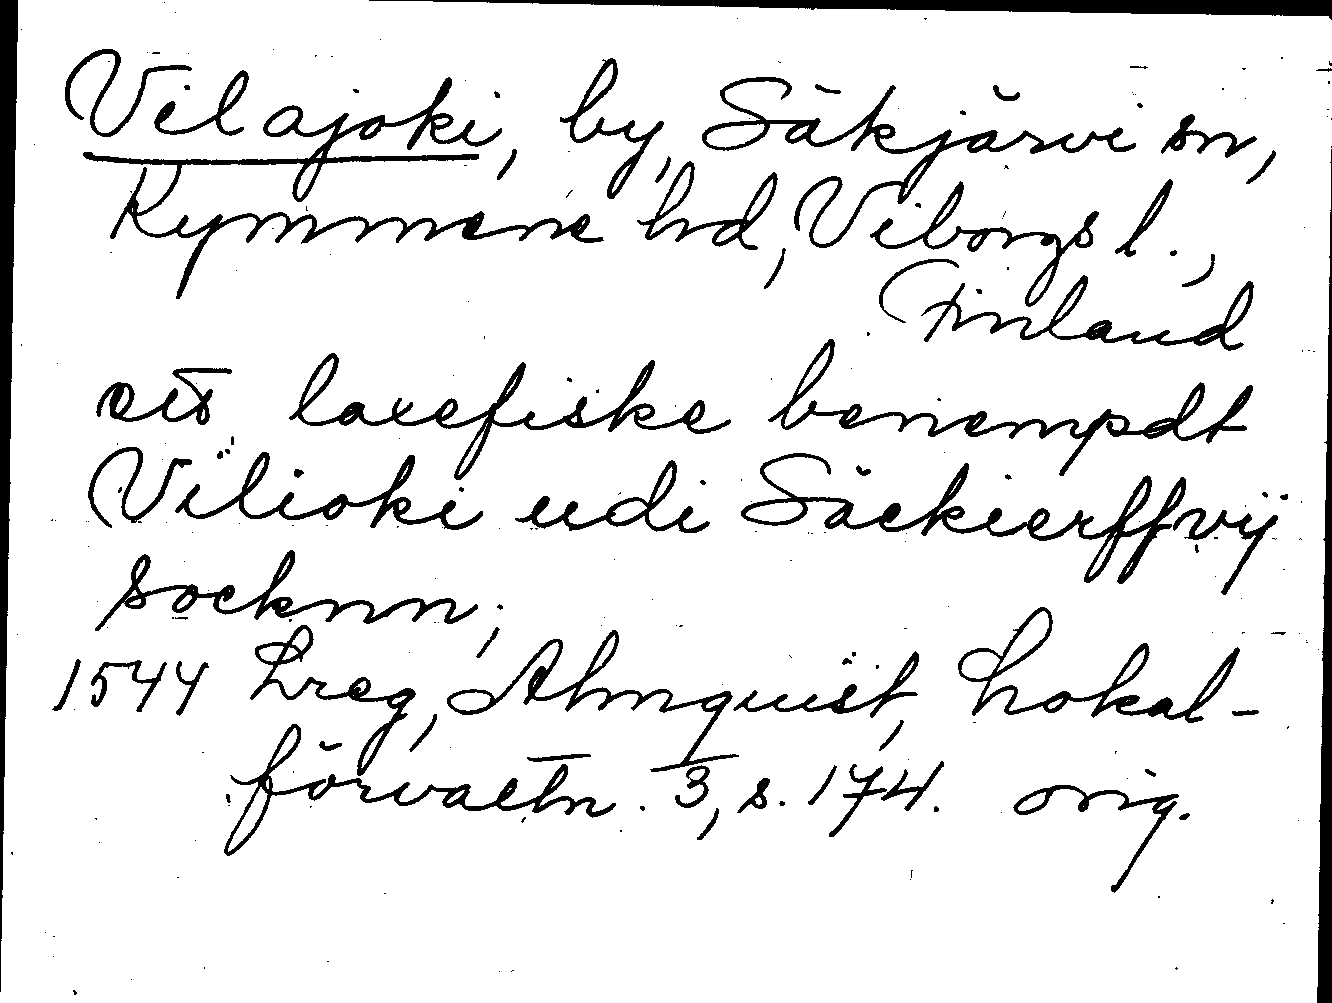 Vilajoki, by, Säkjärvi sn,
Kymmene hd, Viborgs l.,
Finland
ett laxefiske benempdt
Vilioki udi Säckierffvij
socknn;
1544 Lreg, Almquist, Lokal-
förvaltn. 3, s. 174. orig.